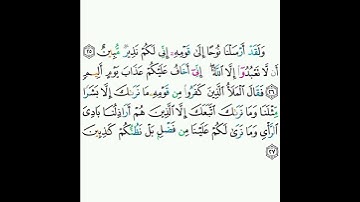 وَلَقَدْ أَرْسَلْنَا نُوحًا إِلَىٰ قَوْمِهِۦٓ إِنِّي لَكُمْ نَذِيرٌ مُّبِينٌ ٢٥
أَن لَّا تَعْبُدُوٓا۟ إِلَّا ٱللَّهَ إِنِّيٓ أَخَافُ عَلَيْكُمْ عَذَابَ يَوْمٍ أَلِيمٍ
٢٦ فَقَالَ ٱلْمَلَأُ ٱلَّذِينَ كَفَرُوا۟ مِن قَوْمِهِۦ مَا نَرَىٰكَ إِلَّا بَشَرًا
مِّثْلَنَا وَمَا نَرَىٰكَ ٱتَّبَعَكَ إِلَّا ٱلَّذِينَ هُمْ أَرَاذِلُنَا بَادِيَ
ٱلرَّأْيِ وَمَا نَرَىٰ لَكُمْ عَلَيْنَا مِن فَضْلٍۭ بَلْ نَظُنُّكُمْ كَٰذِبِينَ
٢٧